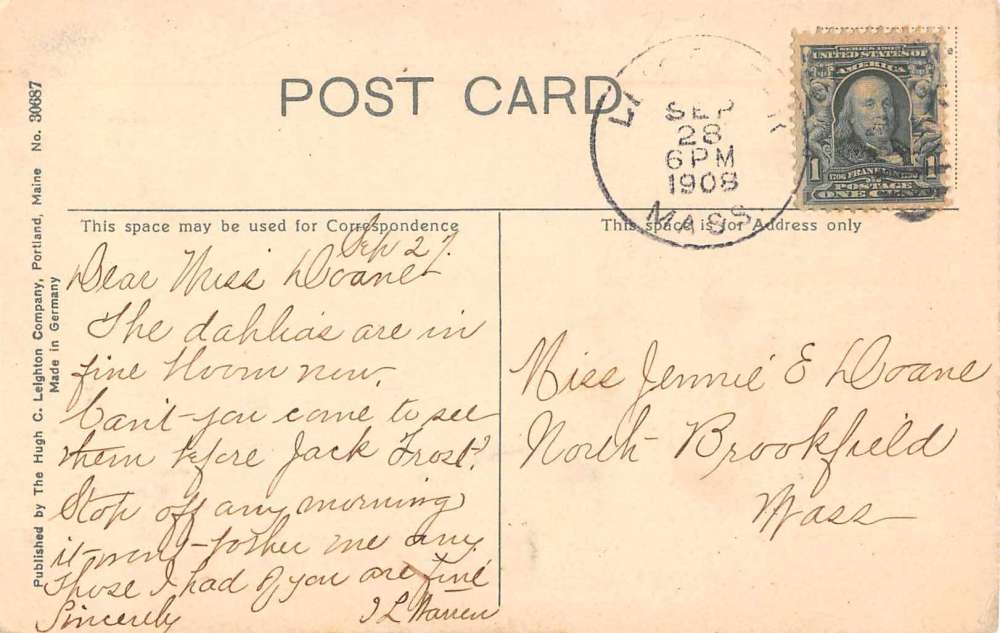 POST CARD
SEP
28
6 PM
1908
MASS.
SERIES 1902
UNITED STATES OF
AMERICA
1 1
1706 FRANKLIN 1790
POSTAGE
ONE CENT
This space may be used for Correspondence
This space is for Address only
Sep 27.
Dear Miss Doane
The dahlias are in
fine bloom now.
Can't you come to see
them before Jack Frost?
Stop off any morning
it wont bother me any.
Those I had of you are fine
Sincerely I L Warren
Miss Jennie E Doane
North Brookfield
Mass
Published by The Hugh C. Leighton Company, Portland, Maine No. 30687
Made in Germany